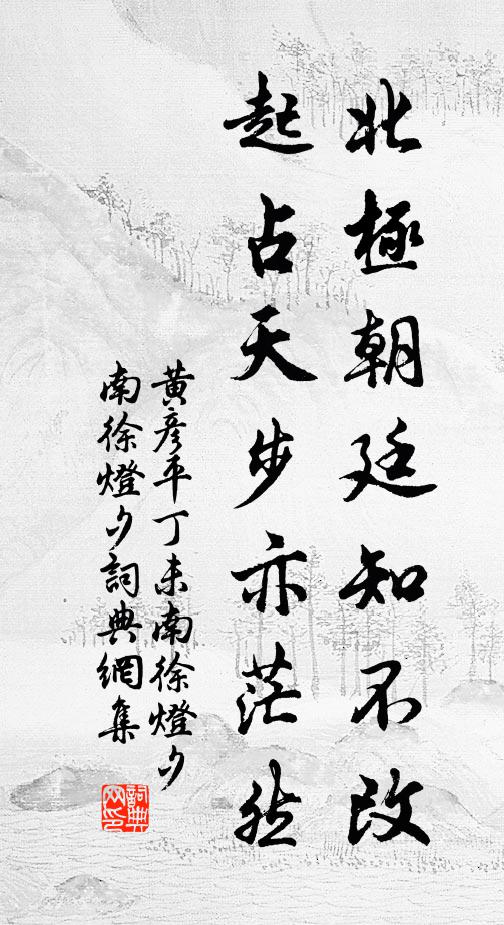 北極朝廷知不改
起占天步亦茫然
黃彦平丁未南徐燈夕
南徐燈夕詞典網集
詞典网印